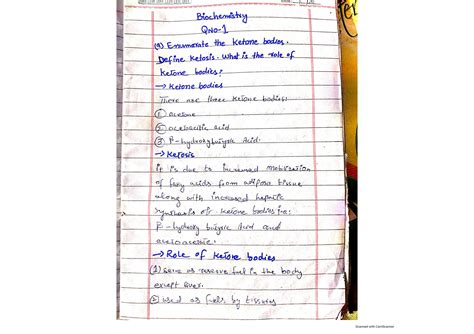 Biochemistry
QNo-1
(a) Enumerate the Ketone bodies.
Define Ketosis. What is the role of
Ketone bodies?
→ Ketone bodies
There are three Ketone bodies:
① acetone
② acetoacetic acid
③ β-hydroxybutyric Acid.
→ Ketosis
it is due to increased mobilization
of fatty acids from adipose tissue
along with increased hepatic
synthesis of Ketone bodies i.e.
β-hydroxy butyric Acid and
acetoacetic.
→ Role of Ketone bodies
① serve as reserve fuel in the body
except liver.
② used as fuels by tissues
Scanned with CamScanner